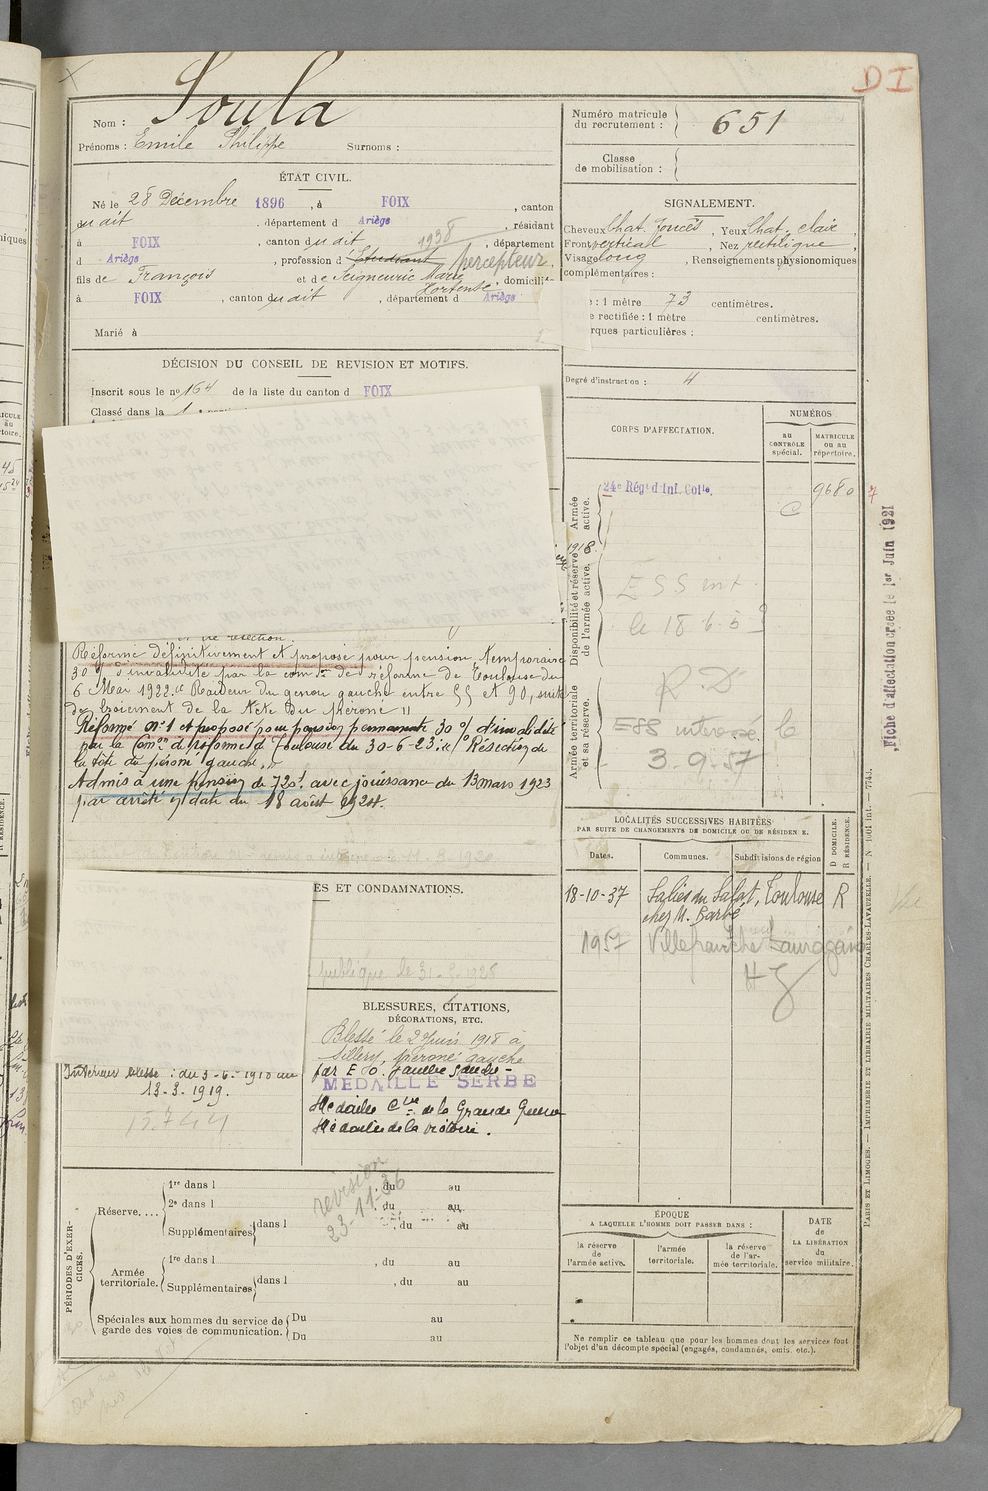 DI
Nom : Soula
Prénoms : Emile Philippe Surnoms :
Numéro matricule du recrutement : 651
Classe de mobilisation :
ÉTAT CIVIL.
Né le 28 Décembre 1896, à FOIX, canton
du dit, département d Ariège, résidant
à FOIX, canton du dit, département 1938
d Ariège, profession d Etudiant percepteur.
fils de François et de Seigneuric Marie Hortense, domicili-
à FOIX, canton du dit, département d Ariège
Marié à
SIGNALEMENT.
Cheveux Chat. foncés, Yeux Chat. clair
Front vertical, Nez rectiligne
Visage long, Renseignements physionomiques
complémentaires :
: 1 mètre 73 centimètres.
e rectifiée : 1 mètre centimètres.
rques particulières :
Degré d'instruction : 4
DÉCISION DU CONSEIL DE REVISION ET MOTIFS.
Inscrit sous le nº 164 de la liste du canton d FOIX
Classé dans la 1
CORPS D'AFFECTATION.
NUMÉROS
au CONTRÔLE spécial.
MATRICULE ou au répertoire.
Armée active.
24e Régt d'Inf. Colle.
9680
C
1918.
Disponibilité et réserve de l'armée active.
ESS int
le 18.6.5
Armée territoriale et sa réserve.
R.D
ESS interessé le
3.9.57
Fiche d'affectation créée le 1er Juin 1921
résection.
Réformé définitivement et proposé pour pension temporaire
30 % d'invalidité par la comon de réforme de Toulouse du
6 Mar 1922. Raideur du genou gauche entre 55 et 90, suite
de broiement de la tête du péroné "
Réformé nº 1 et proposé pour pension permanente 30 % d'invalidité
par la Comon de réforme de Toulouse du 30-6-23: Résection de
la tête du péroné gauche.
Admis à une pension de 720f. avec jouissance du 13 mars 1923
par arrêté en date du 18 août 1924.
ES ET CONDAMNATIONS.
publique le 31
BLESSURES, CITATIONS,
DÉCORATIONS, ETC.
Blessé le 2 Juin 1918 à
Sillery, péroné gauche
par E O.
MEDAILLE SERBE
Médaille Cve de la Grande Guerre
Médaille de la victoire.
Intérieur blessé : du 3-6-1918 au
13.3.1919.
15744
LOCALITÉS SUCCESSIVES HABITÉES
PAR SUITE DE CHANGEMENTS DE DOMICILE OU DE RÉSIDENCE.
Dates. Communes. Subdivisions de région
D DOMICILE. R RÉSIDENCE.
18-10-37 Salies du Salat, Toulouse R
chez M. Barbé
1957 Villefranche Lauragais
HG
PÉRIODES D'EXERCICES.
revision
23-11-36
Réserve....
1re dans l , du au
2e dans l , du au
Supplémentaires dans l , du au
Armée territoriale.
1re dans l , du au
Supplémentaires dans l , du au
Spéciales aux hommes du service de garde des voies de communication.
Du au
Du au
ÉPOQUE
A LAQUELLE L'HOMME DOIT PASSER DANS :
la réserve de l'armée active.
l'armée territoriale.
la réserve de l'armée territoriale.
DATE de LA LIBÉRATION du service militaire.
Ne remplir ce tableau que pour les hommes dont les services font
l'objet d'un décompte spécial (engagés, condamnés, omis, etc.).
PARIS ET LIMOGES. — IMPRIMERIE ET LIBRAIRIE MILITAIRES CHARLES-LAVAUZELLE. — N 1001 int. — 7743.